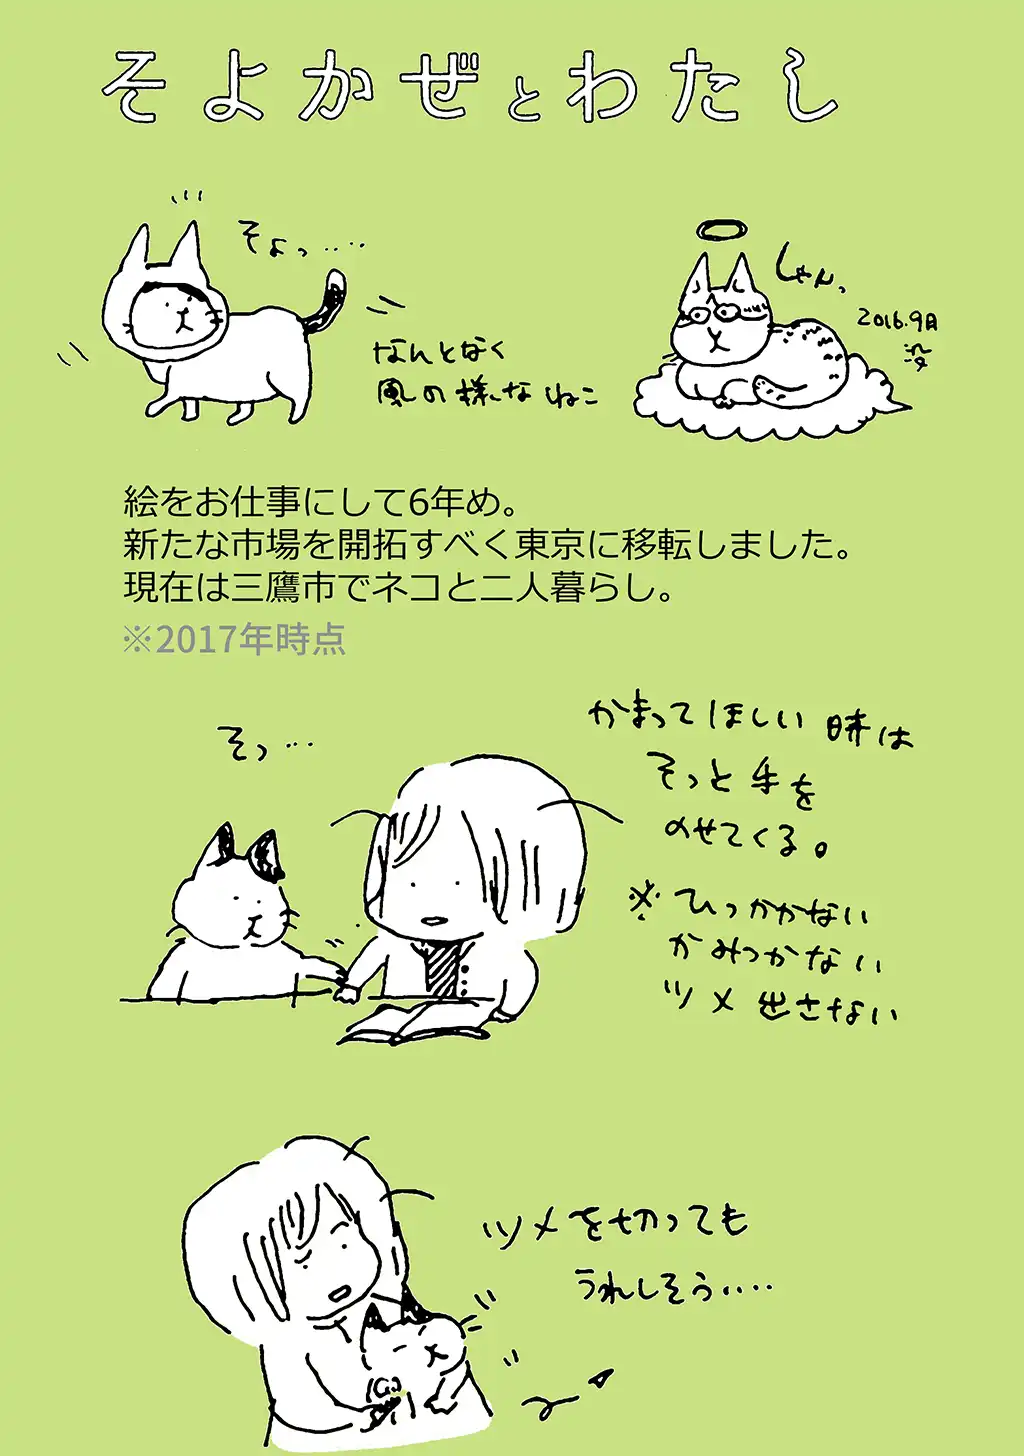 そよかぜとわたし
そよっ‥‥
なんとなく
風の様なねこ
しゃんっ
2016.9月
没
絵をお仕事にして6年め。
新たな市場を開拓すべく東京に移転しました。
現在は三鷹市でネコと二人暮らし。
※2017年時点
そっ…
かまってほしい時は
そっと手を
のせてくる。
※ひっかかない
かみつかない
ツメ出さない
ツメを切っても
うれしそう‥‥